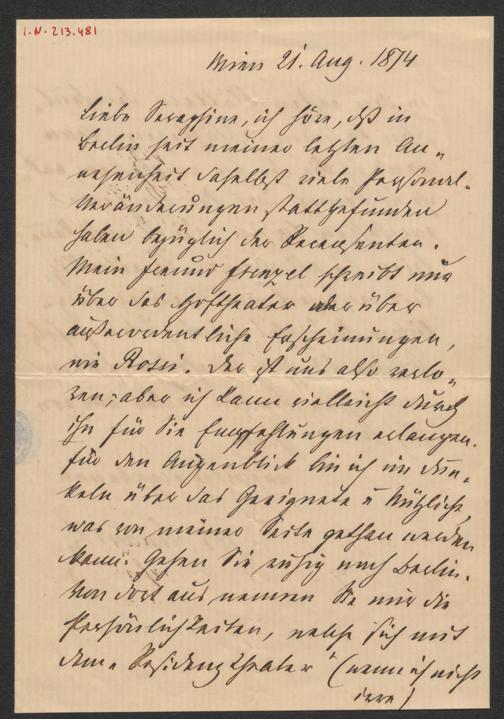 I.N. 213.481
Wien 21. Aug. 1874
Liebe Seraphine, ich höre, daß in
Berlin seit meiner letzten An-
wesenheit daselbst viele Personal-
veränderungen stattgefunden
haben bezüglich der Recensenten.
Mein Freund Frenzel schreibt nur
über das Hoftheater oder über
außerordentliche Erscheinungen,
wie Rossi. Der ist uns also verlo-
ren; aber ich kann vielleicht durch
ihn für Sie Empfehlungen erlangen.
Für den Augenblick bin ich im Dun-
keln über das Geeignete u Nützliche,
was von meiner Seite gethan werden
kann. Gehen Sie ruhig nach Berlin.
Von dort aus nennen Sie mir die
Persönlichkeiten, welche sich mit
dem „Residenztheater" (wenn ich nicht
irre)